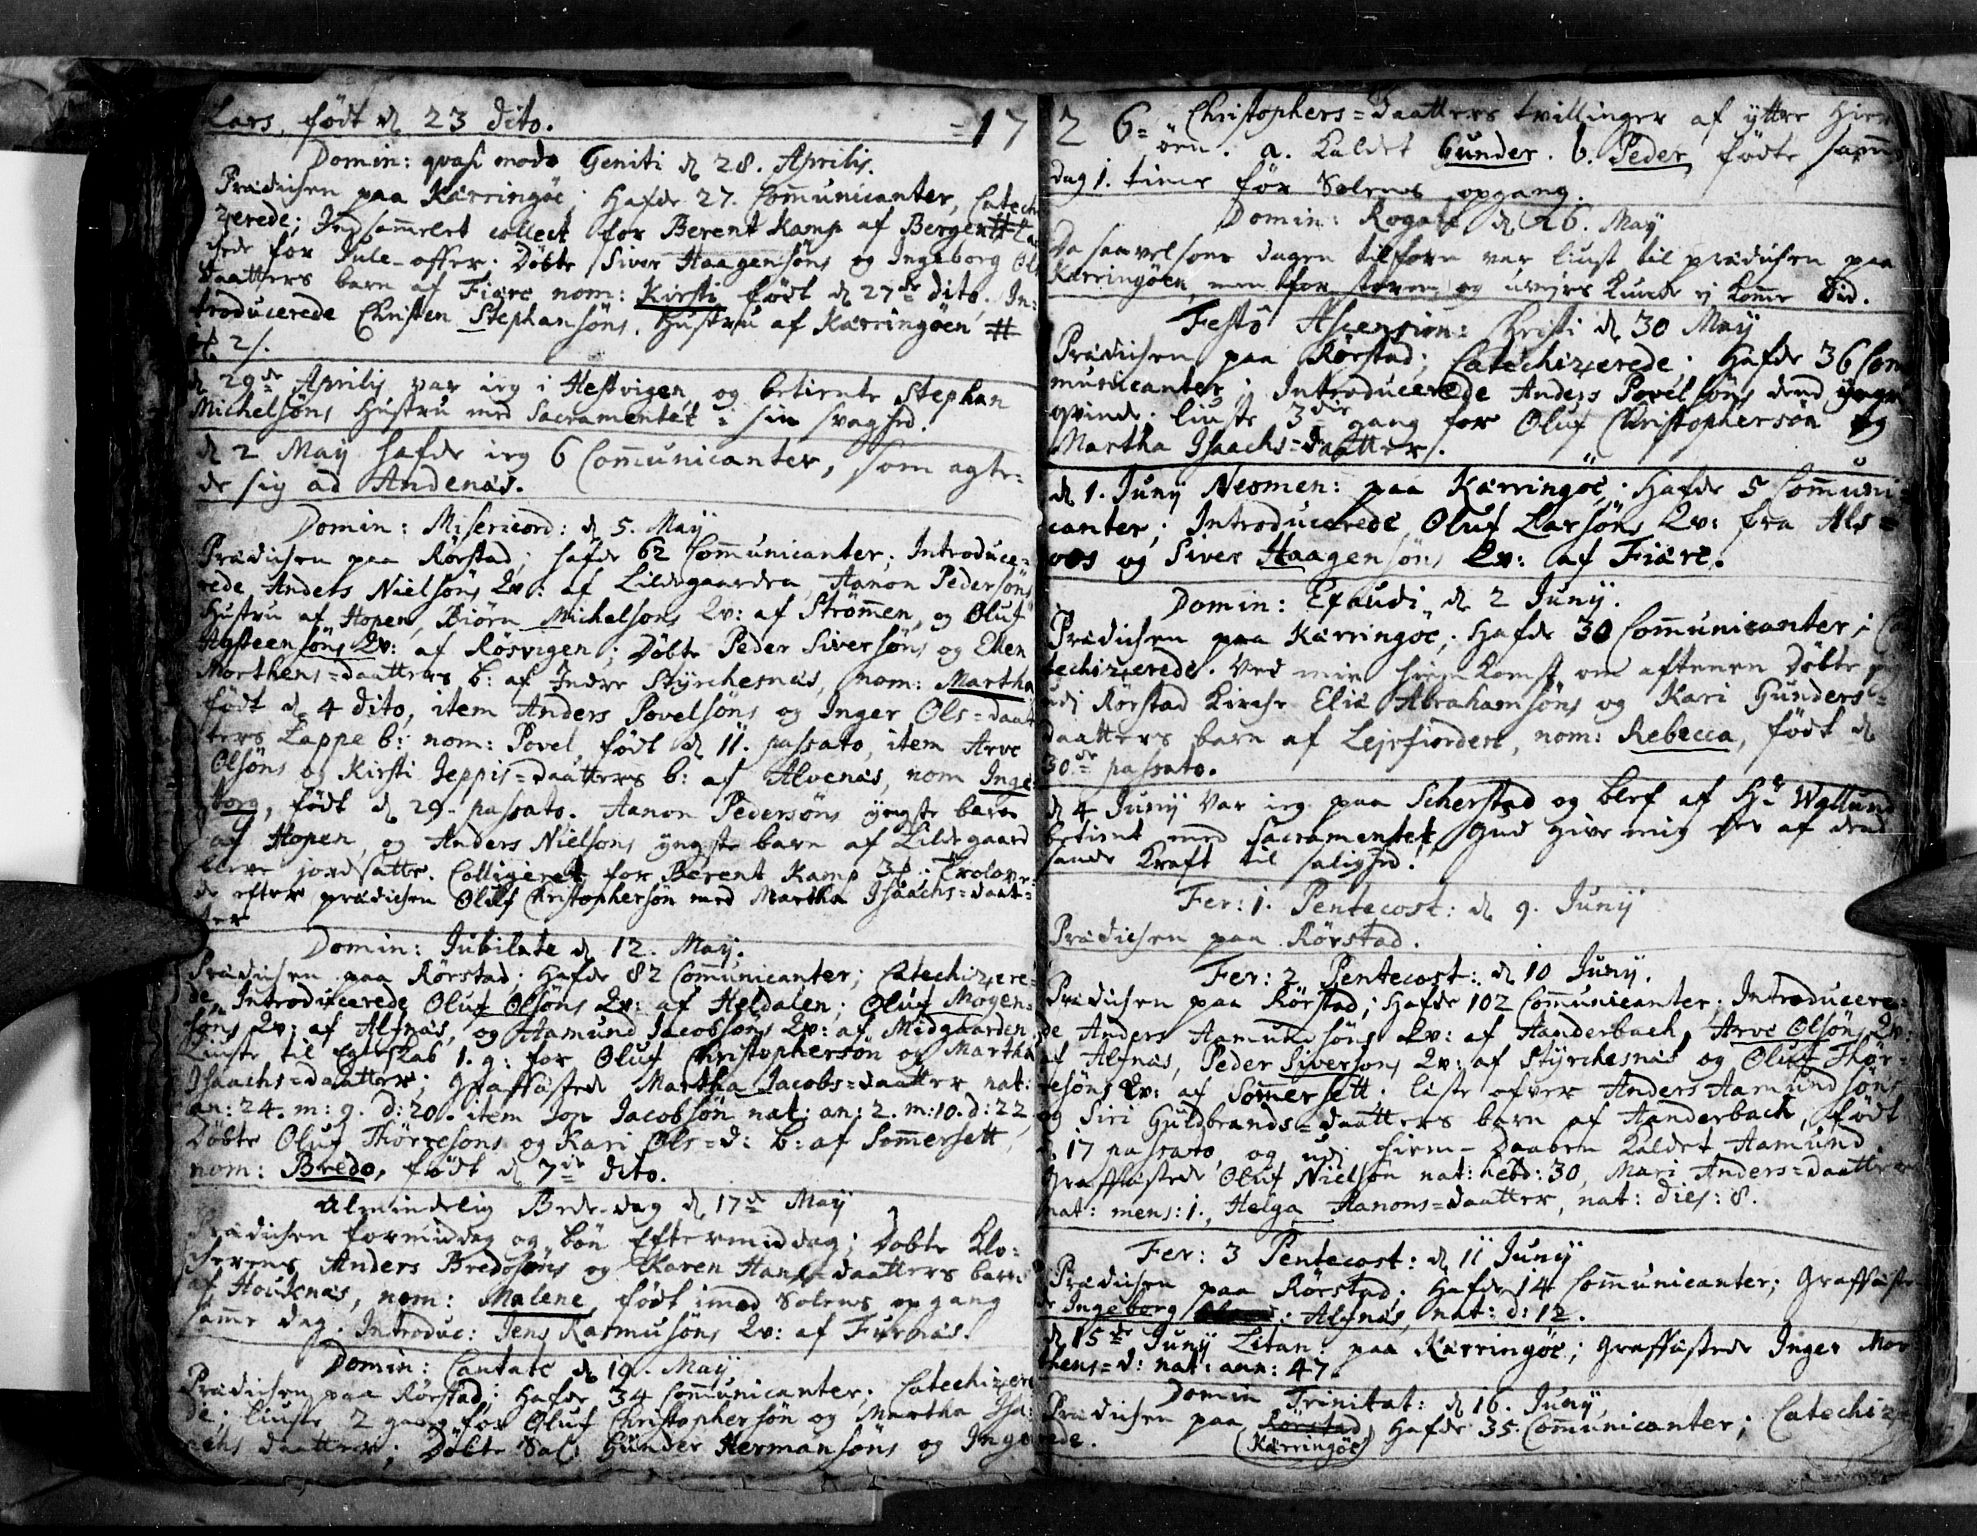 Lars, født d 23 dito.
= 17
Domin: quasi modo Geniti d 28. Aprilis.
Prædichen paa Kærringøe; Hafde 27. Communicanter, Catechi
zerede; Indsammelet collect for Berent Kamp af Bergen #
for Jule-offer; Døbte Siver Haagensøns og Ingeborg Ols
daatters barn af Fiære nom: Kirsti født d 27de dito, In:
troducerede Christen Stephansøns Hustru af Kærringøen #
d 29de Aprilis var ieg i Hestvigen, og betiente Stephan
Michelsøns Hustru med Sacramentet i sin svaghed.
d 2 May hafde ieg 6 Communicanter, som agte-
de sig ad Andenæs.
Domin: Misericord: d 5. May
Prædichen paa Rørstad; hafde 62 Communicanter; Introduce-
rede Anders Nielsøns Qv: af Lildegaarden, Aanon Pedersøns
Hustru af Hopen, Biørn Michelsøns Qv: af Strømmen, og Oluf
Agsteensøns Qv: af Røsvigen; Døbte Peder Siversøns og Ellen
Morthens-daatters b: af Indre Styrchesnæs, nom: Martha
født d 4 dito, item Anders Povelsøns og Inger Ols-daat
ters Lappe b: nom: Povel, født d 11. passato, item Arve
Olsøns og Kirsti Jeppis-daatters b: af Alvenæs, nom Inge
borg, født d 29. passato. Aanon Pedersøns yngste barn
af Hopen, og Anders Nielsøns yngste barn af Lildegaard
bleve jordsatte. Colligeret for Berent Kamp Trolove-
de efter prædichen Oluf Christophersøn med Martha Isaachs-daat-
ter
Domin: Jubilate d 12. May.
Prædichen paa Rørstad; Hafde 82 Communicanter; Catechizere-
de, Introducerede Oluf Olsøns Qv: af Heldalen; Oluf Mogen-
søns Qv: af Alfnæs, og Aamund Jacobsøns Qv: af Midgaarden,
Liuste til Egteskab 1. g: for Oluf Christophersøn og Martha
Isaachs-daatter; Graffæstede Martha Jacobs-daatter nat:
an: 24. m: 9. d: 20. item Jacobsøn nat: an: 2. m: 10. d: 22
Døbte Oluf Thørresøns og Kari Ols-d: b: af Sommersett,
nom: Bredo, født d 7de dito.
Almindelig Bede-dag d 17de May
Prædichen formiddag og bøn Eftermiddag; Døbte Klo-
cherens Anders Bredosøns og Karen Hans-daatters barn
af Houknæs, nom: Malene, født imod Solens opgang
samme dag. Introduc: Jens Rasmusøns Qv: af Furnæs.
Domin: Cantate d 19. May
Prædichen paa Rørstad; Hafde 34 Communicanter; Catechizere
de; liuste 2 gang for Oluf Christophersøn og Martha Isa-
achs daatter; Døbte Sal: Gunder Hermansøns og Inge
2 6= Christophers-daatters tvillinger af yttre Hier
øen. a. kaldet Gunder. b. Peder, fødte samme
dag 1. time før Solens opgang.
Domin: Rogate d 26. May
Da saavelsom dagen tilforn var liust til prædichen paa
Kærringøen, men for storm og uvejrs kunde ej komme did.
Festo Ascension: Christi d 30 May
Prædichen paa Rørstad; Catechizerede; Hafde 36 Com
municanter; Introducerede Anders Povelsøns dend yngr
qvinde; liuste 3die gang for Oluf Christophersøn og
Martha Isaachs-daatter.
d 1. Juny Nesmen: paa Kærringøe; Hafde 5 Communi-
canter; Introducerede Oluf Larsøns Qv: fra Als-
oos og Siver Haagensøns Qv: af Fiære.
Domin: Exaudi d 2 Juny.
Prædichen paa Kærringøe; Hafde 30 Communicanter; Ca
techizerede. Ved min hiemkomst om aftenen Døbte
udi Rørstad Kirche Elia Abrahamsøns og Kari Gunders-
daatters barn af Lejrfiorden, nom: Rebecca, født d
30de passato.
d 4 Juny var ieg paa Scherstad og blef af Hr Wyllund
betient med Sacramentet, Gud give mig af dend
sande Kraft til salighed.
Fer: 1. Pentecost: d 9. Juny
Prædichen paa Rørstad.
Fer: 2 Pentecost: d 10 Juny.
Prædichen paa Rørstad; Hafde 102 Communicanter; Introducere-
de Anders Aamundsøns Qv: af Aanderbach, Arve Olsøns Qv:
af Alfnæs, Peder Siversøns Qv: af Styrchesnæs og Oluf Thør-
resøns Qv: af Sommersett; læste ofver Anders Aamundsøns
og Siri Guldbrands-daatters barn af Aanderbach, født
d 17 passato, og udi hiem-daaben kaldet Aamund
Graffæstede Oluf Nielsøn nat: hebd: 30, Mari Anders-daatter
nat: mens: 1., Helga Aanons-daatter, nat: dies: 8.
Fer: 3 Pentecost: d 11 Juny
Prædichen paa Rørstad; Hafde 14 Communicanter; Graffæste-
de Ingeborg : Alfnæs, nat: d: 12.
d 15de Juny Litan: paa Kærringøe; Graffæstede Inger Mor
thens-d: nat: ann: 47.
Domin Trinitat: d 16. Juny.
Prædichen paa Rørstad Hafde 35 Communicanter; Catechize
rede. (Kærringøe)